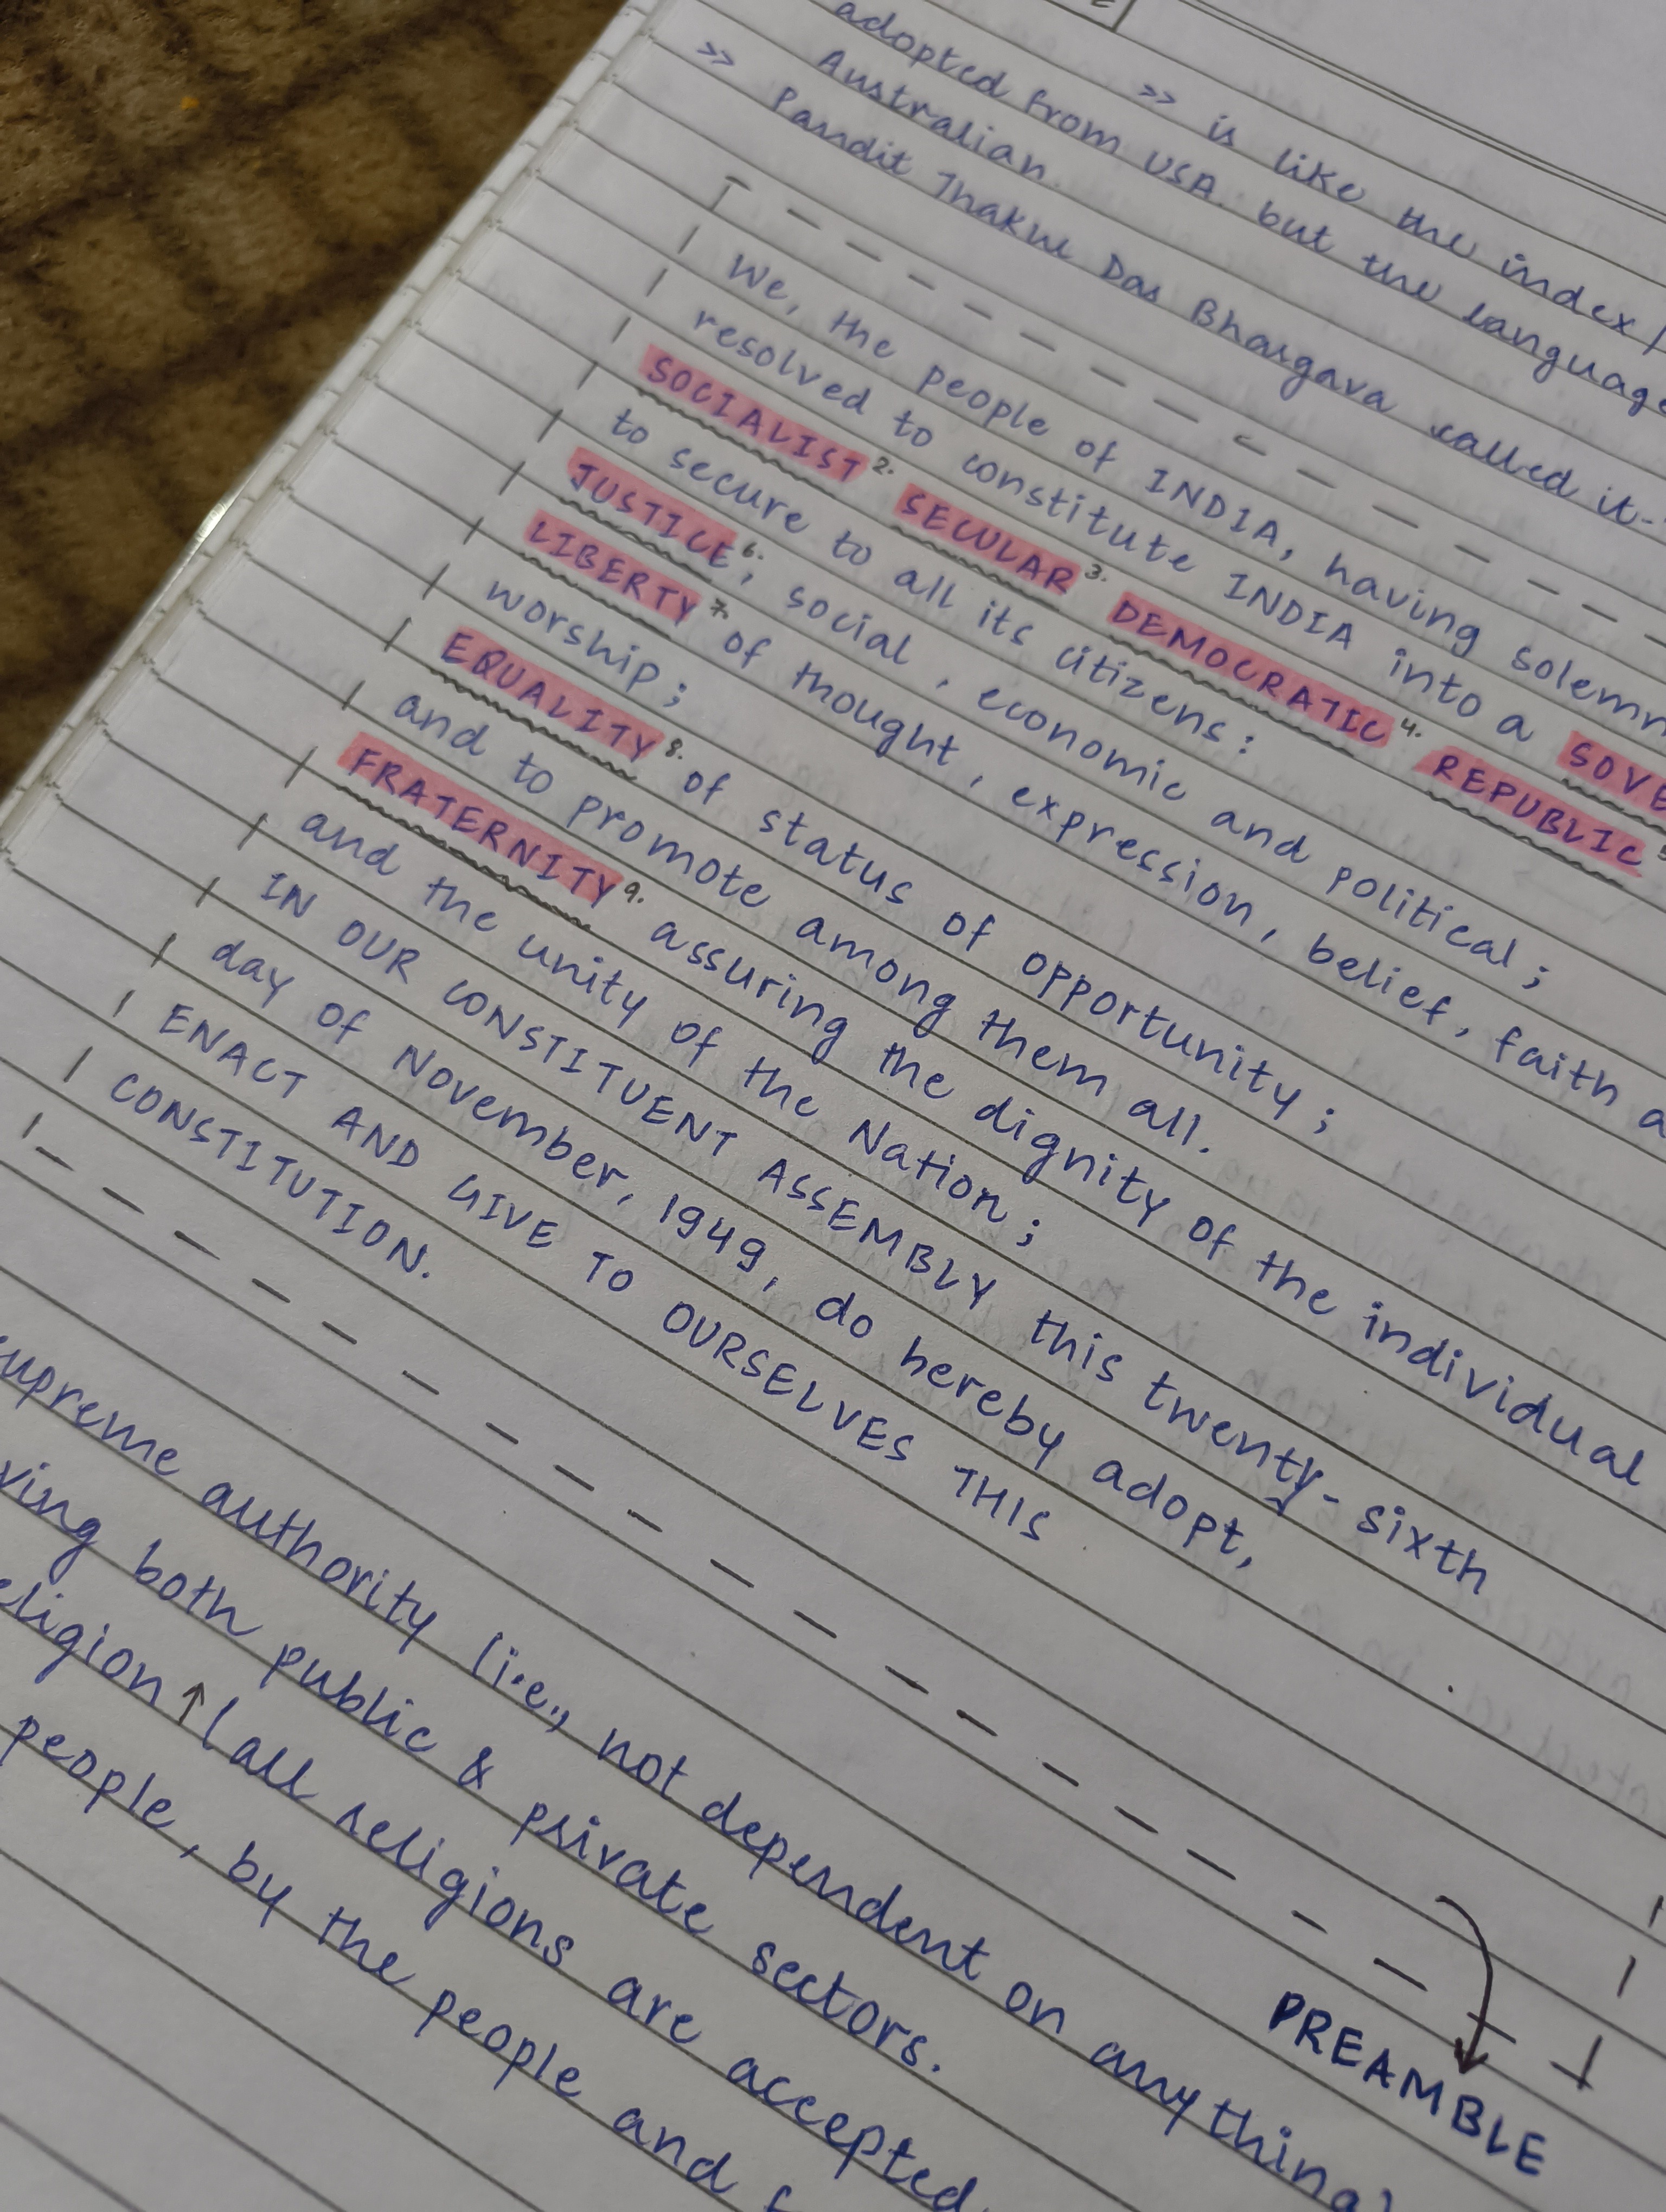 >> is like the index/
adopted from USA but the language
Australian.
>> Pandit Thakur Das Bhargava called it-
We, the people of INDIA, having solemn
resolved to constitute INDIA into a SOVE
SOCIALIST 2. SECULAR 3. DEMOCRATIC 4. REPUBLIC 5
to secure to all its citizens:
JUSTICE 6. ; social, economic and political;
LIBERTY 7. of thought, expression, belief, faith a
worship;
EQUALITY 8. of status of opportunity;
and to promote among them all.
FRATERNITY 9. assuring the dignity of the individual
and the unity of the Nation;
IN OUR CONSTITUENT ASSEMBLY this twenty-sixth
day of November, 1949, do hereby adopt,
ENACT AND GIVE TO OURSELVES THIS
CONSTITUTION.
PREAMBLE
supreme authority (i.e., not dependent on anything)
ving both public & private sectors.
eligion ↑ (all religions are accepted
people, by the people and f